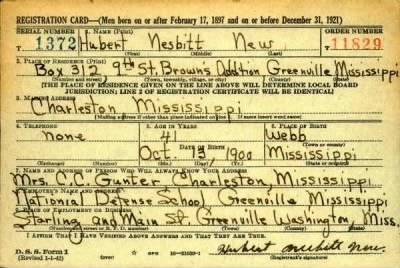 REGISTRATION CARD—(Men born on or after February 17, 1897 and on or before December 31, 1921)
SERIAL NUMBER 1. NAME (Print) ORDER NUMBER
T 1372 Hubert Nesbitt New T 11829
(First) (Middle) (Last)
2. PLACE OF RESIDENCE (Print)
Box 312 9th St. Browns Addition Greenville Mississippi
(Number and street) (Town, township, village, or city) (County) (State)
[THE PLACE OF RESIDENCE GIVEN ON THE LINE ABOVE WILL DETERMINE LOCAL BOARD
JURISDICTION; LINE 2 OF REGISTRATION CERTIFICATE WILL BE IDENTICAL]
3. MAILING ADDRESS
Charleston Mississippi
[Mailing address if other than place indicated on line 2. If same insert word same]
4. TELEPHONE 5. AGE IN YEARS 6. PLACE OF BIRTH
none 41 Webb
DATE OF BIRTH (Town or county)
Oct 13, 1900 Mississippi
(Exchange) (Number) (Mo.) (Day) (Yr.) (State or country)
7. NAME AND ADDRESS OF PERSON WHO WILL ALWAYS KNOW YOUR ADDRESS
Mrs. C.O. Gunter Charleston, Mississippi
8. EMPLOYER'S NAME AND ADDRESS
National Defense School Greenville Mississippi
9. PLACE OF EMPLOYMENT OR BUSINESS
Starling and Main St. Greenville Washington, Miss.
(Number and street or R. F. D. number) (Town) (County) (State)
I AFFIRM THAT I HAVE VERIFIED ABOVE ANSWERS AND THAT THEY ARE TRUE.
D. S. S. Form 1
(Revised 1-1-42) (over) Hubert Nesbitt New
(Registrant's signature)